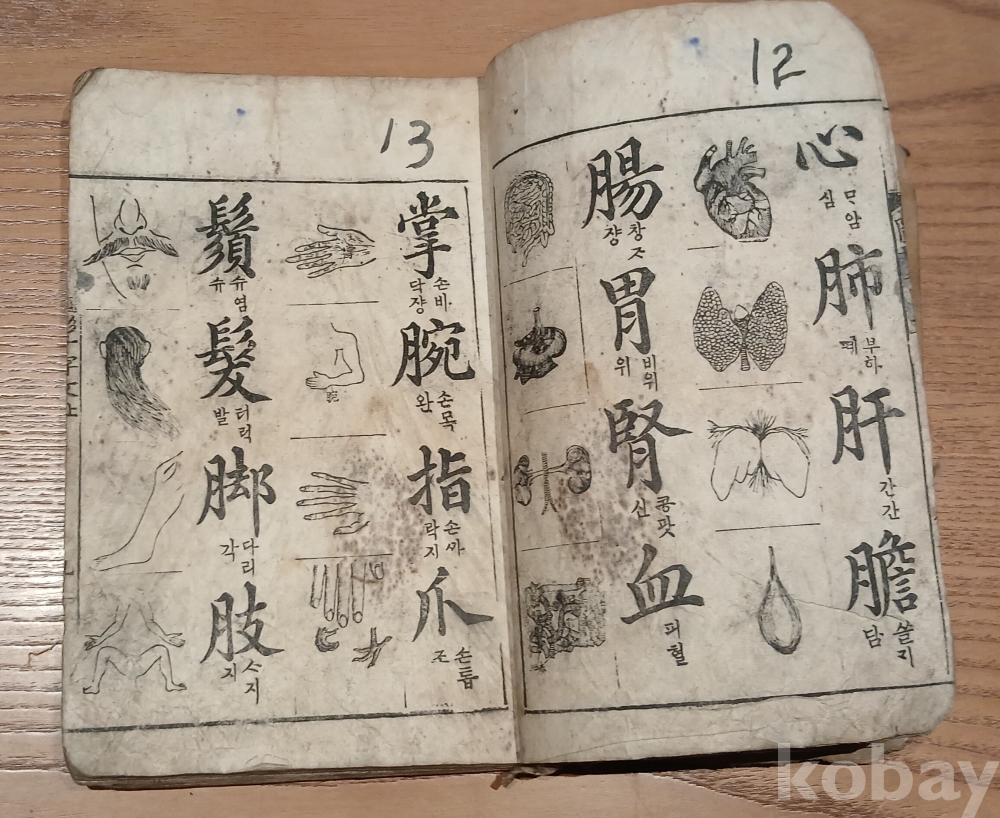 12
心 ᄆᆞ암 심
肺 부하 폐
肝 간 간
膽 쓸ᄀᆡ 담
腸 창ᄌᆞ 쟝
胃 비위 위
腎 콩팟 신
血 피 혈
13
掌 손바닥 쟝
腕 손목 완
指 손ᄭᅡ락 지
爪 손톱 조
鬚 슈염 슈
髮 터럭 발
脚 다리 각
肢 ᄉᆞ지 지
kobay